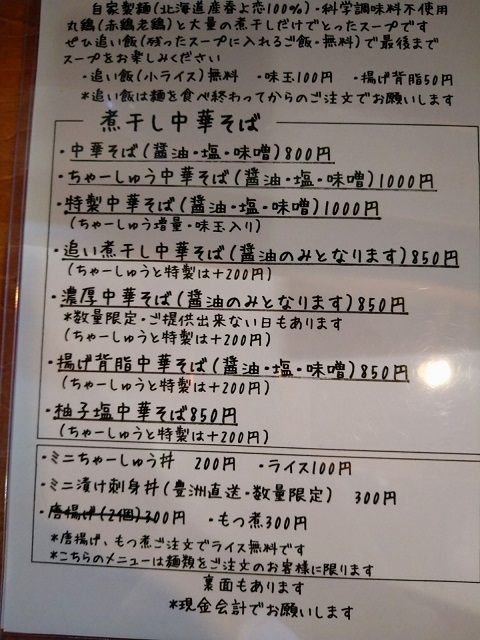 自家製麺(北海道産春よ恋100%)・科学調味料不使用
丸鶏(赤鶏老鶏)と大量の煮干しだけでとったスープです
ぜひ追い飯(残ったスープに入れるご飯・無料)で最後まで
スープをお楽しみください
・追い飯(小ライス)無料 ・味玉100円 ・揚げ背脂50円
*追い飯は麺を食べ終わってからのご注文でお願いします
煮干し中華そば
・中華そば(醤油・塩・味噌)800円
・ちゃーしゅう中華そば(醤油・塩・味噌)1000円
・特製中華そば(醤油・塩・味噌)1000円
(ちゃーしゅう増量・味玉入り)
・追い煮干し中華そば(醤油のみとなります)850円
(ちゃーしゅうと特製は+200円)
・濃厚中華そば(醤油のみとなります)850円
*数量限定・ご提供出来ない日もあります
(ちゃーしゅうと特製は+200円)
・揚げ背脂中華そば(醤油・塩・味噌)850円
(ちゃーしゅうと特製は+200円)
・柚子塩中華そば850円
(ちゃーしゅうと特製は+200円)
・ミニちゃーしゅう丼 200円 ・ライス100円
・ミニ漬け刺身丼(豊洲直送・数量限定) 300円
・唐揚げ(2個)300円 ・もつ煮300円
*唐揚げ、もつ煮ご注文でライス無料です
*こちらのメニューは麺類をご注文のお客様に限ります
裏面もあります
*現金会計でお願いします